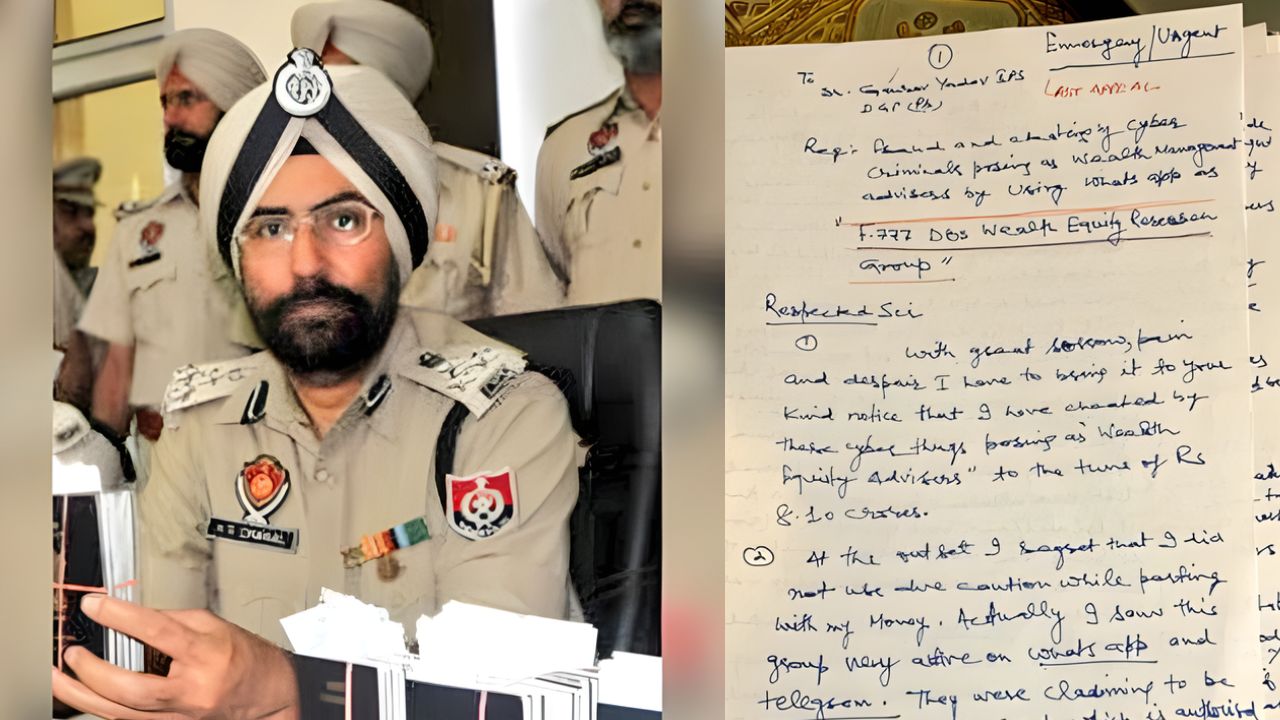 ①
Emmergency/Urgent
To
Sh. Gaurav Yadav IPS
LAST APPEAL
DGP (Pb)
Reg:- Fraud and cheating by Cyber
Criminals posing as Wealth Management
advisers by Using Whats app as
"F.777 DBS Wealth Equity Research
Group"
Respected Sir
①
With great sorrow, pain
and despair I have to bring it to your
Kind notice that I have cheated by
these cyber thugs posing as Wealth
Equity Advisers" to the tune of Rs
8.10 crores.
② At the out set I regret that I did
not use due caution while parting
with my Money. Actually I saw this
group very active on whats app and
telegram. They were claiming to be
which is authorised